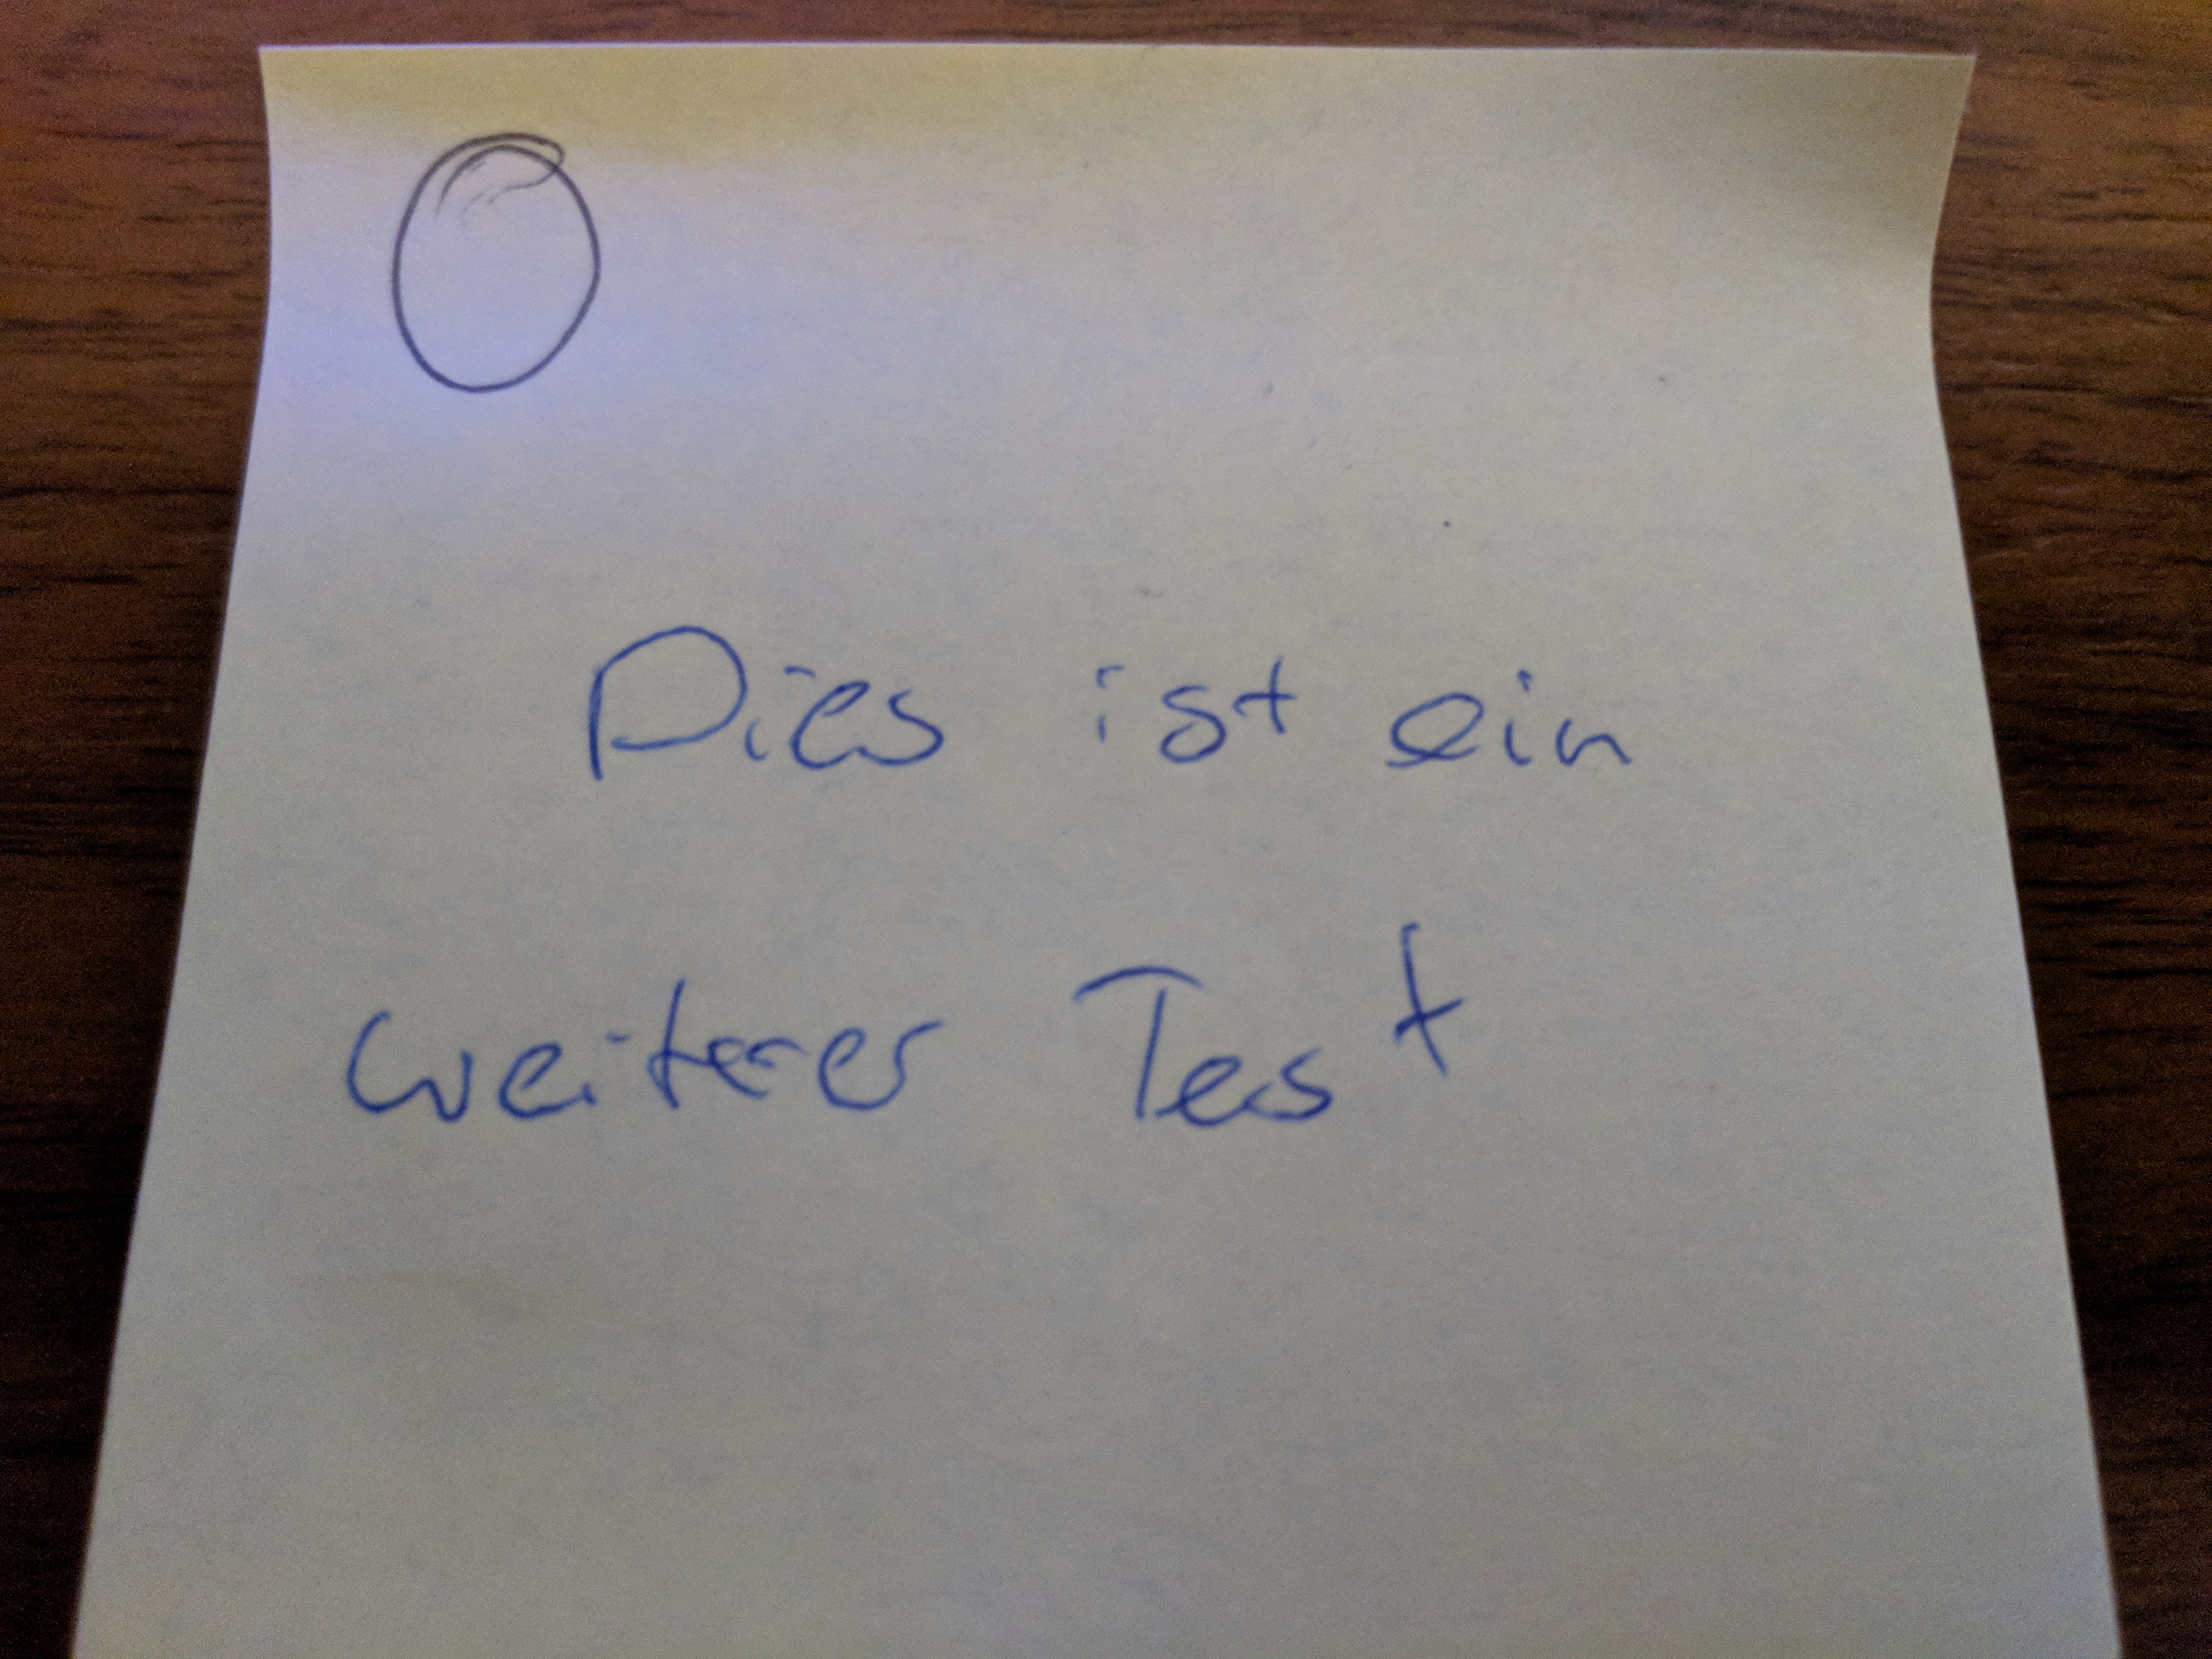 Dies ist ein
weiterer Test